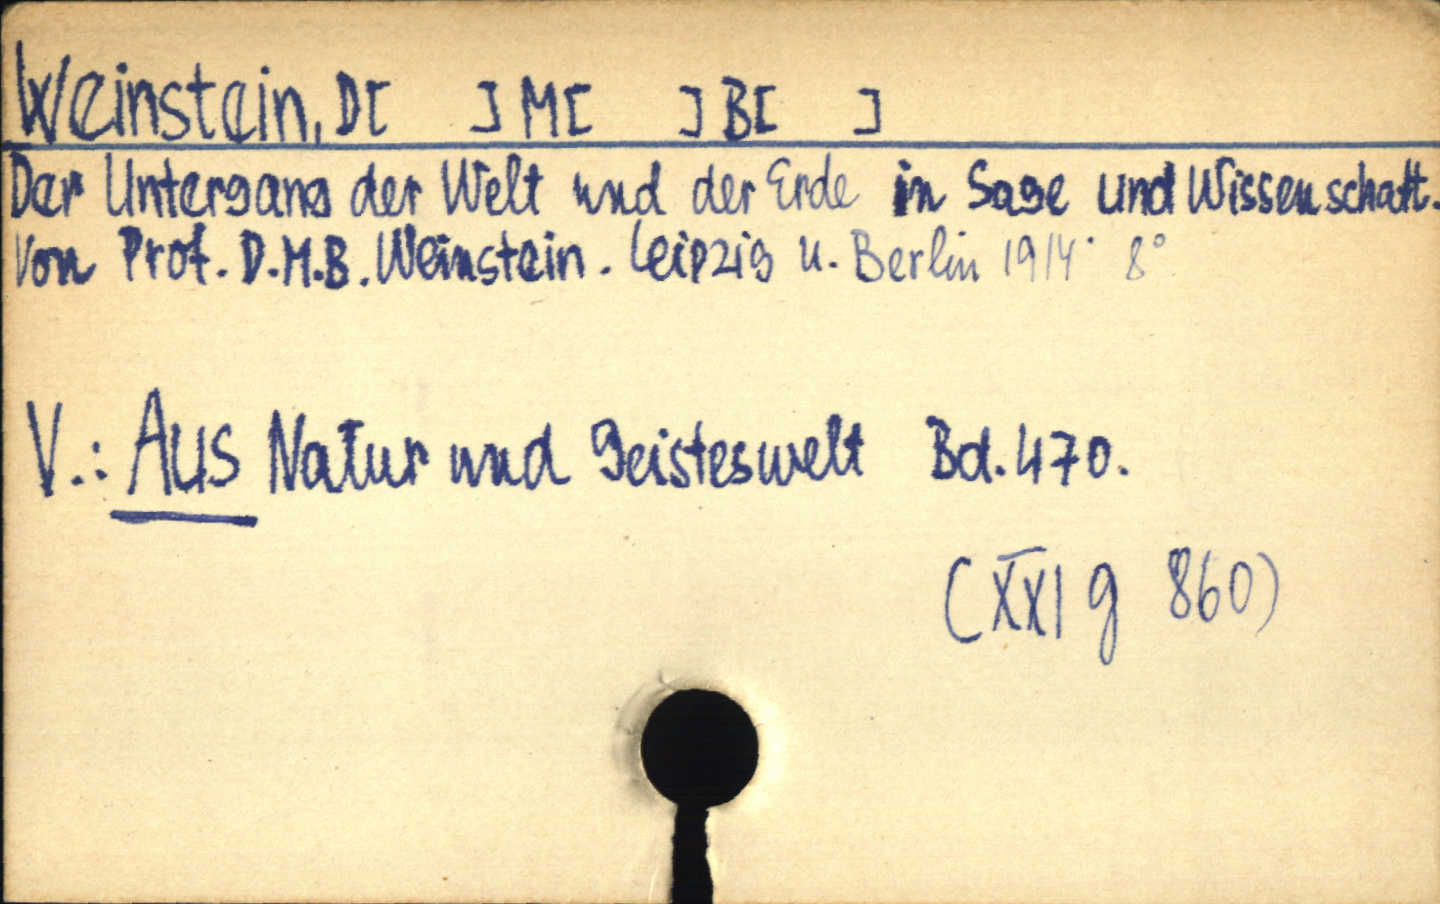 Weinstein, D[ ] M[ ] B[ ]
Der Untergang der Welt und der Erde in Sage und Wissenschaft.
Von Prof. D.M.B. Weinstein. Leipzig u. Berlin 1914. 8°
V.: Aus Natur und Geisteswelt Bd. 470.
(XXI g 860)